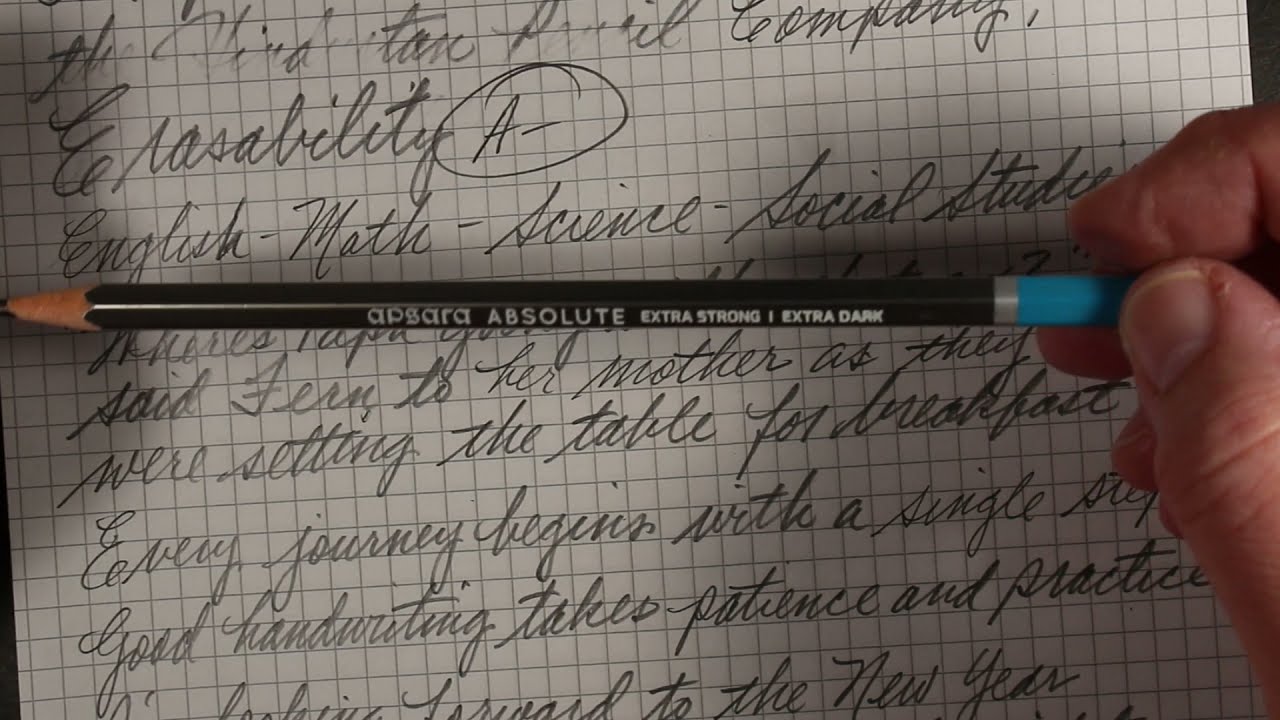 the Hindustan Pencil Company,
Erasability A-
English - Math - Science - Social Studies
apsara ABSOLUTE EXTRA STRONG | EXTRA DARK
Where's Papa going
said Fern to her mother as they
were setting the table for breakfast
Every journey begins with a single step
Good handwriting takes patience and practice
looking forward to the New Year